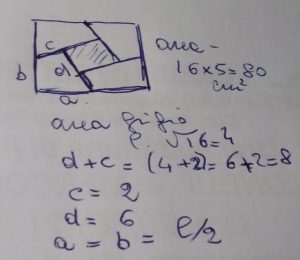 c
d
b
a
area =
16x5=80
cm²
area grigio
l = √16=4
d+c = (4+2)= 6+2=8
c = 2
d = 6
a = b = l/2